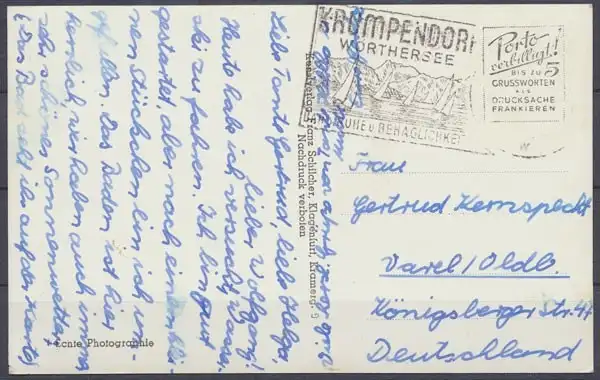 KRUMPENDORF
WÖRTHERSEE
RUHE u BEHAGLICHKEIT
Porto
verbilligt!
BIS ZU 5
GRUSSWORTEN
ALS
DRUCKSACHE
FRANKIEREN
Liebe Tante Gertrud, liebe Helga,
lieber Wolfgang!
Heute habe ich versucht, Wasser-
ski zu fahren. Ich bin gut
gestartet, aber nach einem klei-
nen Stückchen bin ich
gefallen. Das Baden ist hier
herrlich, wir haben auch immer
sehr schönes Sonnenwetter.
(Das Bad seht ihr auf der Karte)
Kunstverlag Franz Schilcher, Klagenfurt, Kramerg. 9
Nachdruck verboten
Echte Photographie
Frau
Gertrud Kernspecht
Varel/Oldb.
Königsberger Str. 47
Deutschland